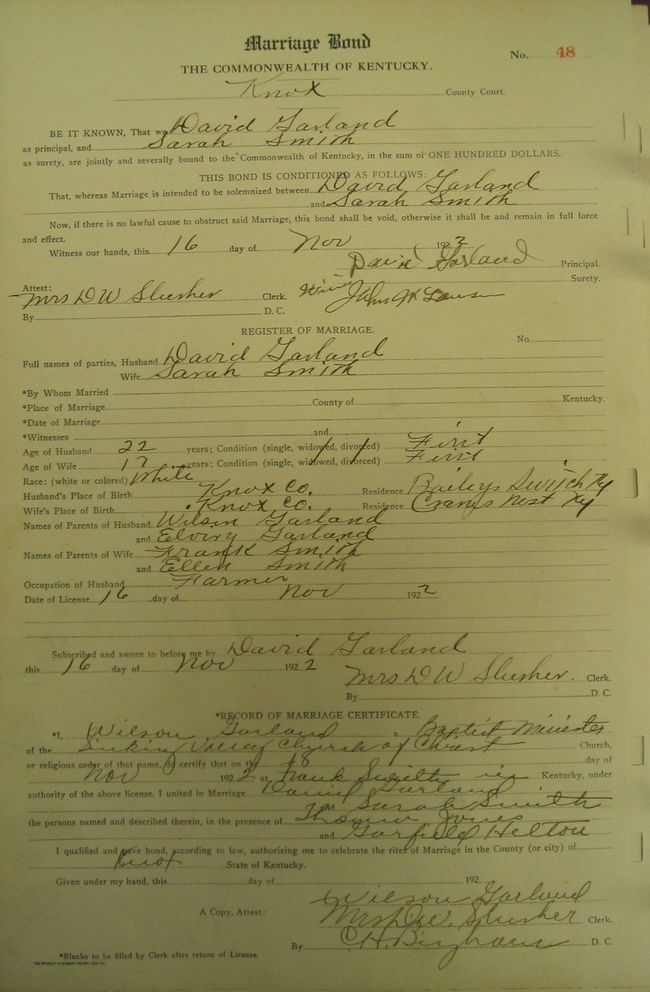 Marriage Bond
No. 48
THE COMMONWEALTH OF KENTUCKY.
Knox County Court.
BE IT KNOWN, That we David Garland
as principal, and Sarah Smith
as surety, are jointly and severally bound to the Commonwealth of Kentucky, in the sum of ONE HUNDRED DOLLARS.
THIS BOND IS CONDITIONED AS FOLLOWS:
That, whereas Marriage is intended to be solemnized between David Garland
and Sarah Smith
Now, if there is no lawful cause to obstruct said Marriage, this bond shall be void, otherwise it shall be and remain in full force
and effect.
Witness our hands, this 16 day of Nov 1922
David Garland Principal.
Attest: Surety.
Mrs D W Slusher Clerk. John H
By D. C.
REGISTER OF MARRIAGE.
No.
Full names of parties, Husband David Garland
Wife Sarah Smith
*By Whom Married
*Place of Marriage County of Kentucky.
*Date of Marriage
*Witnesses and
Age of Husband 22 years; Condition (single, widowed, divorced) First
Age of Wife 17 years; Condition (single, widowed, divorced) First
Race: (white or colored) White
Husband's Place of Birth Knox Co. Residence Baileys Switch Ky
Wife's Place of Birth Knox Co. Residence Cranes Nest Ky
Names of Parents of Husband Wilson Garland
and Elviry Garland
Names of Parents of Wife Frank Smith
and Ellen Smith
Occupation of Husband Farmer
Date of License 16 day of Nov 1922
Subscribed and sworn to before me by David Garland
this 16 day of Nov 1922
Mrs D W Slusher. Clerk.
By D. C.
*RECORD OF MARRIAGE CERTIFICATE.
*I, Wilson Garland a Baptist Minister
of the Sinking Valley Church of Christ Church,
or religious order of that name, do certify that on the 18 day of
Nov 1922 at Frank Smiths in Kentucky, under
authority of the above license, I united in Marriage David Garland
Sarah Smith
the persons named and described therein, in the presence of Thomas Jones
and Garfield Helton
I qualified and gave bond, according to law, authorizing me to celebrate the rites of Marriage in the County (or city) of
Knox State of Kentucky.
Given under my hand, this day of 192
Wilson Garland
A Copy, Attest: Mrs D.W. Slusher Clerk.
By C.H. Bingham D. C.
*Blanks to be filled by Clerk after return of License.